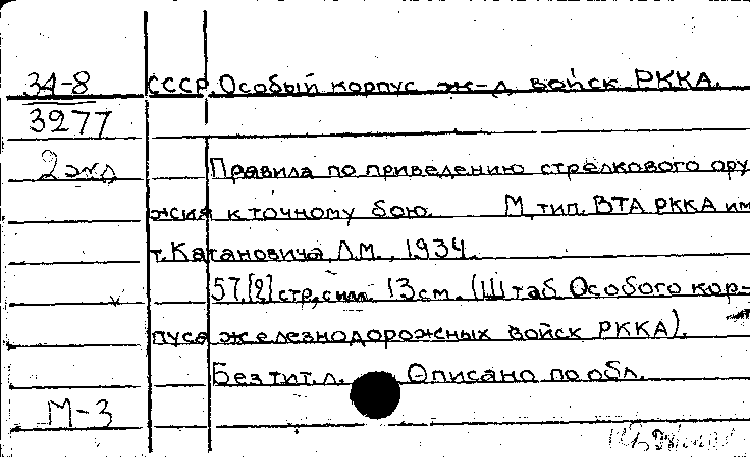 34-8 СССР. Особый корпус ж-д войск РККА.
3277
2 экз Правила по приведению стрелкового ору
жия к точному бою. М, тип. ВТА РККА им
т. Кагановича Л.М., 1934.
57,[2] стр, схим. 13 см. (Штаб Особого кор-
пуса железнодорожных войск РККА).
Без тит. л. Описано по обл.
М-3